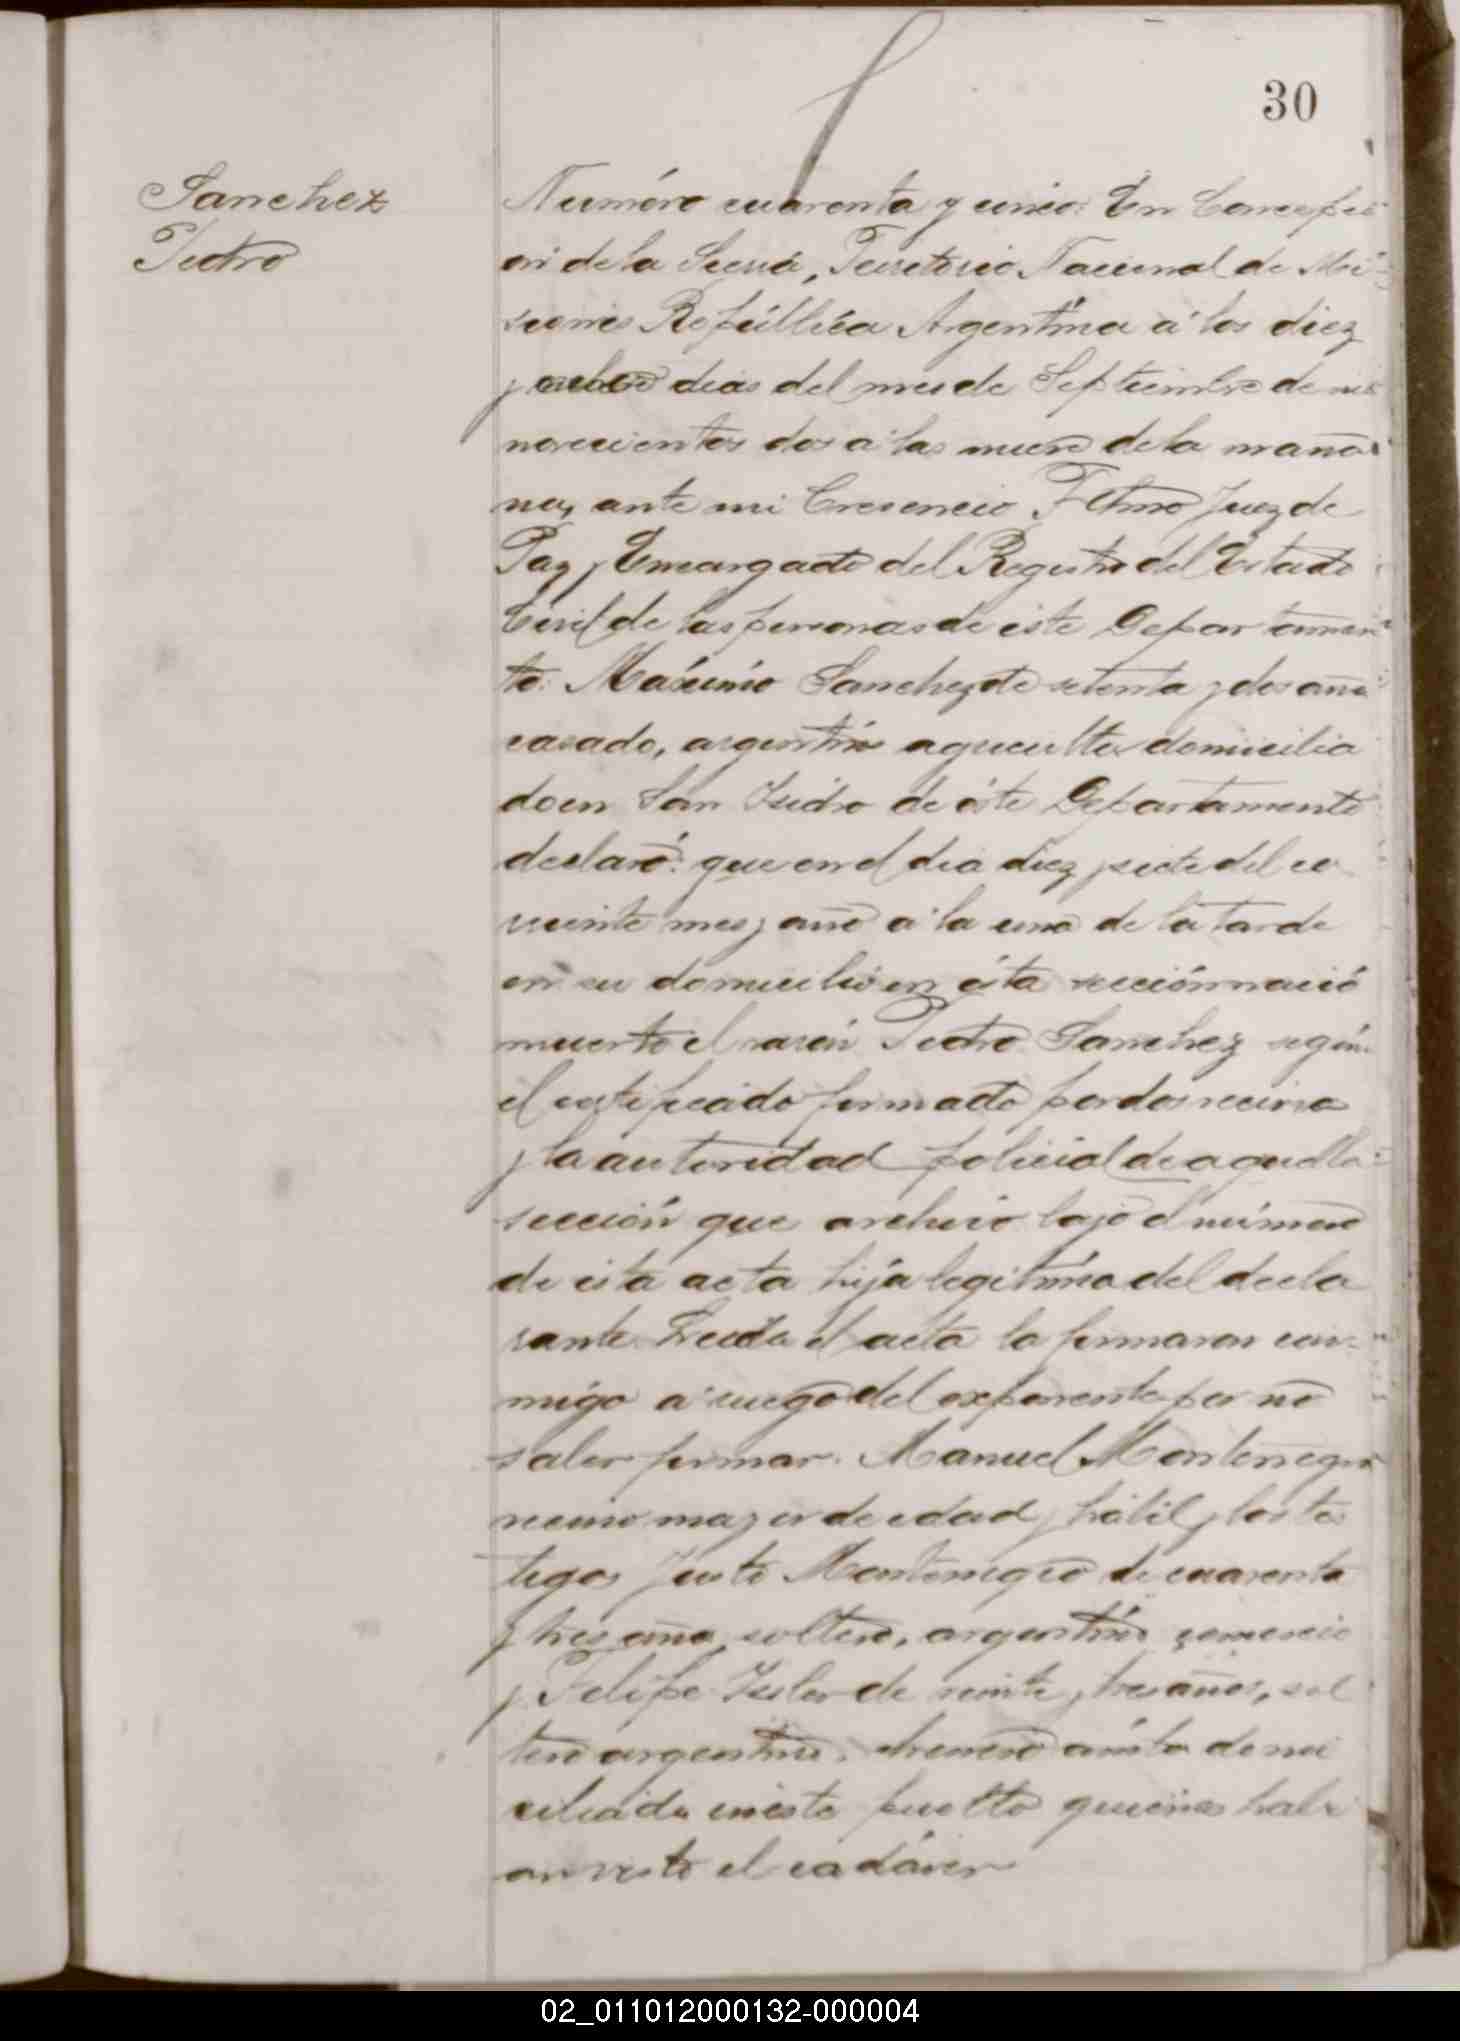 30
Sanchez
Pedro
Número cuarenta y uno: En Concepci-
on de la Sierra, Territorio Nacional de Mi-
siones República Argentina á los diez
y ocho dias del mes de Septiembre de mil
novecientos dos á las nueve de la maña-
na, ante mi Cresencio Juez de
Paz y Encargado del Registro del Estado
Civil de las personas de este Departamen-
to: Máximo Sanchez de setenta y dos años
casado, argentino agricultor domicilia
do en San Isidro de éste Departamento
declaró: que en el dia diez y siete del co
rriente mes y año á la una de la tarde
en su domicilio en ésta sección nació
muerto el varón Pedro Sanchez según
el certificado firmado por dos vecinos
y la autoridad policial de aquella
sección que archivo bajo el número
de esta acta hijo legitimo del decla
rante. Leida el acta la firmaron con-
migo á ruego del exponente por no
saber firmar. Manuel Montenegro
vecino mayor de edad y hábil y los tes
tigos Justo Montenegro de cuarenta
y tres años, soltero, argentino comercio
y Felipe de veinte y tres años, sol
tero argentino, domi
ciliados en este pueblo quienes habi
an visto el cadáver
02_011012000132-000004